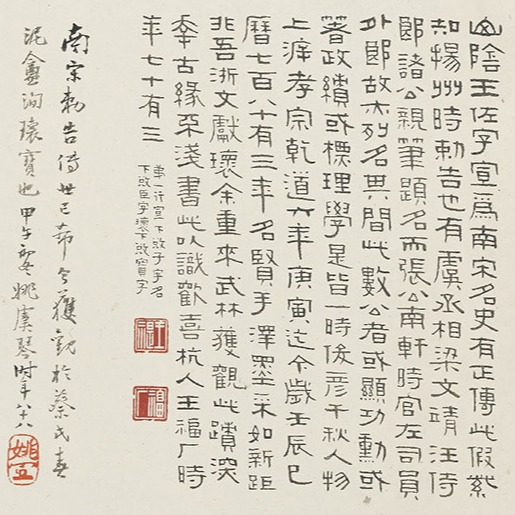 山陰王佐字宣為南宋名史有正傳此假紫
知揚州時勅告也有虞丞相梁文靖汪侍
郎諸公親筆題名而張公南軒時官左司員
外郎故亦列名其間此數公者或顯功勳或
著政績或標理學是皆一時俊彥千秋人物
上泝孝宗乾道六年庚寅迄今歲壬辰已
曆七百八十有三年名賢手澤墨采如新詎
非吾浙文獻瓌余重來武林獲觀此蹟深
幸古緣不淺書此以識歡喜杭人王福厂時
年七十有三
第一行宣下敚子字名
下敚臣字瓌下敚寶字
南宋勅告傳世已希今獲觀於蔡氏春
泥盦洵瓌寶也甲午姚虞琴時年八十八